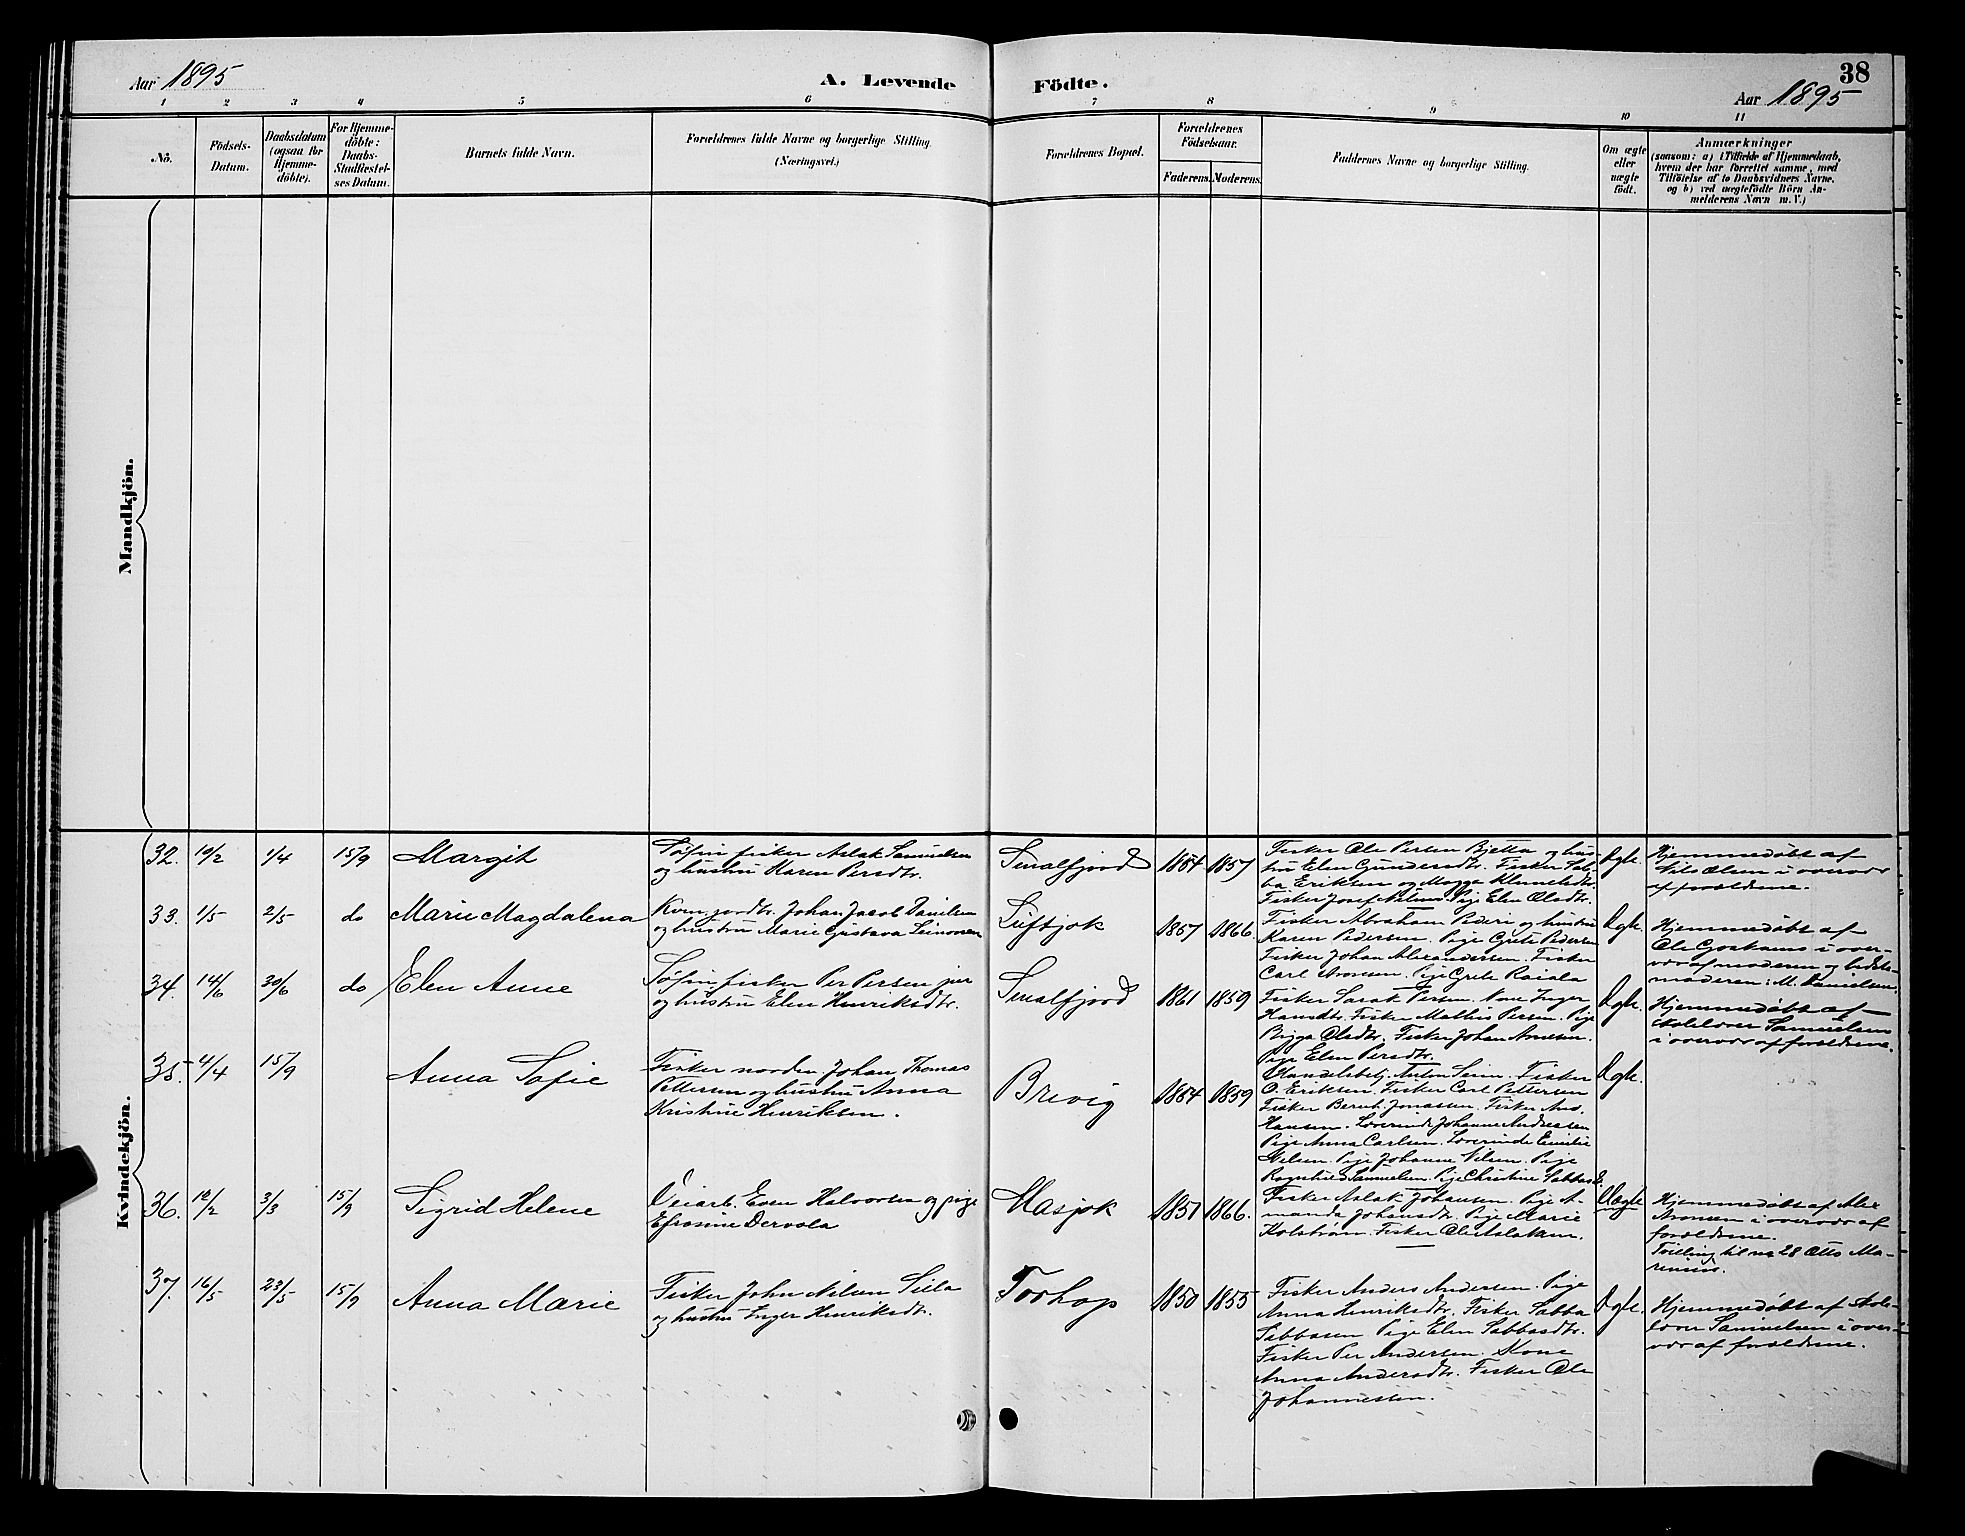 Aar 1895
A. Levende
Födte.
38
Aar 1895
1 2 3 4 5 6 7 8 9 10 11
No.
Födsels-
Datum.
Daabsdatum
(ogsaa for
Hjemme-
döbte).
For Hjemme-
döbte:
Daabs-
Stadfæstel-
ses Datum.
Barnets fulde Navn.
Forældrenes fulde Navne og borgerlige Stilling.
(Næringsvei.)
Forældrenes Bopæl.
Forældrenes
Födselsaar.
Faderens.
Moderens.
Faddernes Navne og borgerlige Stilling.
Om ægte
eller
uægte
födt.
Anmærkninger
(saasom: a) i Tilfælde af Hjemmedaab,
hvem der har forrettet samme, med
Tilföielse af to Daabsvidners Navne,
og b) ved uægtefödte Börn An-
melderens Navn m. V.)
Mandkjön.
Kvindekjön.
32. 10/2 1/4 15/9 Margit
Søfin fisker Aslak Samuelsen
og hustru Karen Persdtr.
Smalfjord 1854 1857
Fisker Ole Persen Bjetta og hus-
tru Elen Gundersdtr. Fisker Sab-
ba Eriksen og Magga Klemetsdtr.
Fisker Josef Nilsen. Pige Elen Olsdtr.
Ægte.
Hjemmedøbt af
Nils Olsen i overvær
af forældrene.
33. 1/5 2/5 do Marie Magdalena
Kven jordbr. Johan Jacob Danielsen
og hustru Marie Gustava Seinonen
Luftjok 1857 1866
Fisker Abraham Pederi og hustru
Karen Pedersen. Pige Grete Pedersen
Fisker Johan Alexandersen. Fisker
Carl Aronsen. Pige Grete Raiala
Ægte.
Hjemmedøbt af
Ole Gaskams i over-
vær af moderen og bedste-
moderen: M. Danielsen.
34. 14/6 30/6 do Elen Anne
Søfin fisker Per Persen jur
og hustru Elen Henriksdtr.
Smalfjord 1861 1859
Fisker Sarak Persen. Kone Inger
Hansdtr. Fisker Mathis Persen. Pige
Bigga Olsdtr. Fisker Johan Arnesen.
Pige Elen Persdtr.
Ægte.
Hjemmedøbt af
skolelærer Samuelsen
i overvær af forældrene.
35. 4/4 15/9
Anna Sofie
Fisker norden. Johan Thomas
Pettersen og hustru Anna
Kristine Henriksen.
Brevig 1854 1859
Handelsbetj. Anton Seim. Fisker
O. Eriksen. Fisker Carl Pettersen
Fisker Bernh. Jonassen. Fisker And.
Hansen. Lærerinde Johanne Andreasen
Pige Anna Carlsen. Lærerinde Emilie
Nilsen. Pige Johanne Nilsen. Pige
Ragnhild Samuelsen. Pige Christine Sabbasd.
Ægte.
36. 12/2 3/3 15/9 Sigrid Helene
Veiarb. Even Halvorsen og pige
Efrosine Dervola
Masjok 1851 1866.
Fisker Aslak Johansen. Pige A-
manda Johansdtr. Pige Marie
Kolstrøm. Fisker Ole Aslaksen.
Uægte
Hjemmedøbt af Alex
Aronsen i overvær af
forældrene.
Tvilling til no 28 Otto Ma-
renius.
37. 16/5 23/5 15/9 Anna Marie
Fisker John Nilsen Siila
og hustru Inger Henriksdtr.
Torhop 1850 1855
Fisker Anders Andersen. Pige
Anna Henriksdtr. Fisker Sabba
Sabbasen. Pige Elen Sabbasdtr.
Fisker Per Andersen. Kone
Anna Andersdtr. Fisker Ole
Johannessen.
Ægte.
Hjemmedøbt af skole-
lærer Samuelsen i over-
vær af forældrene.